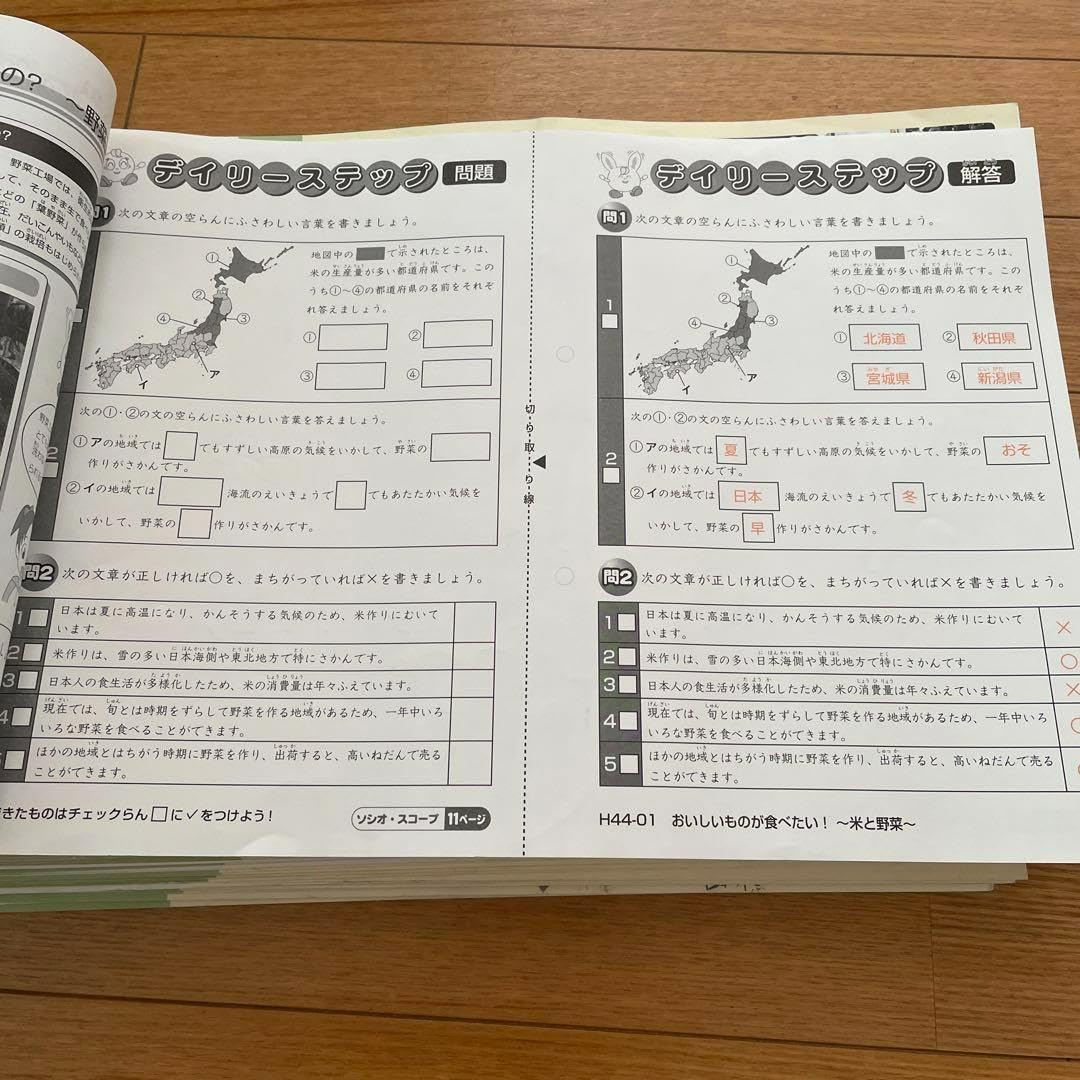 の? ～野菜
野菜工場では、
して、そのまま生で食べ
などの「葉野菜」が
在、だいこんやいも
」の栽培もはじめ
デイリーステップ 問題
次の文章の空らんにふさわしい言葉を書きましょう。
地図中の で示されたところは、
米の生産量が多い都道府県です。この
うち①～④の都道府県の名前をそれぞ
れ答えましょう。
① ②
③ ④
① ② ③ ④ ア イ
2
次の①・②の文の空らんにふさわしい言葉を答えましょう。
①アの地域では でもすずしい高原の気候をいかして、野菜の
作りがさかんです。
②イの地域では 海流のえいきょうで でもあたたかい気候を
いかして、野菜の 作りがさかんです。
問2 次の文章が正しければ○を、まちがっていれば×を書きましょう。
1 日本は夏に高温になり、かんそうする気候のため、米作りにむいて
います。
2 米作りは、雪の多い日本海側や東北地方で特にさかんです。
3 日本人の食生活が多様化したため、米の消費量は年々ふえています。
4 現在では、旬とは時期をずらして野菜を作る地域があるため、一年中いろ
いろな野菜を食べることができます。
5 ほかの地域とはちがう時期に野菜を作り、出荷すると、高いねだんで売る
ことができます。
きたものはチェックらん□に✓をつけよう!
ソシオ・スコープ 11ページ
切り取り線
デイリーステップ 解答
問1 次の文章の空らんにふさわしい言葉を書きましょう。
1
地図中の で示されたところは、
米の生産量が多い都道府県です。この
うち①～④の都道府県の名前をそれぞ
れ答えましょう。
① 北海道 ② 秋田県
③ 宮城県 ④ 新潟県
① ② ③ ④ ア イ
2
次の①・②の文の空らんにふさわしい言葉を答えましょう。
①アの地域では 夏 でもすずしい高原の気候をいかして、野菜の おそ
作りがさかんです。
②イの地域では 日本 海流のえいきょうで 冬 でもあたたかい気候を
いかして、野菜の 早 作りがさかんです。
問2 次の文章が正しければ○を、まちがっていれば×を書きましょう。
1 日本は夏に高温になり、かんそうする気候のため、米作りにむいて
います。 ×
2 米作りは、雪の多い日本海側や東北地方で特にさかんです。 ○
3 日本人の食生活が多様化したため、米の消費量は年々ふえています。 ×
4 現在では、旬とは時期をずらして野菜を作る地域があるため、一年中いろ
いろな野菜を食べることができます。
5 ほかの地域とはちがう時期に野菜を作り、出荷すると、高いねだんで売る
ことができます。
H44-01 おいしいものが食べたい! ～米と野菜～